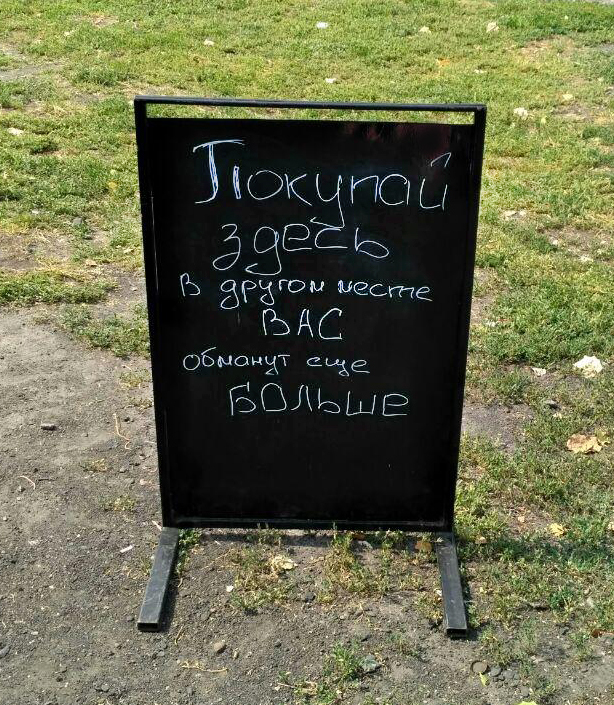 Покупай
здесь
в другом месте
ВАС
обманут еще
БОЛЬШЕ